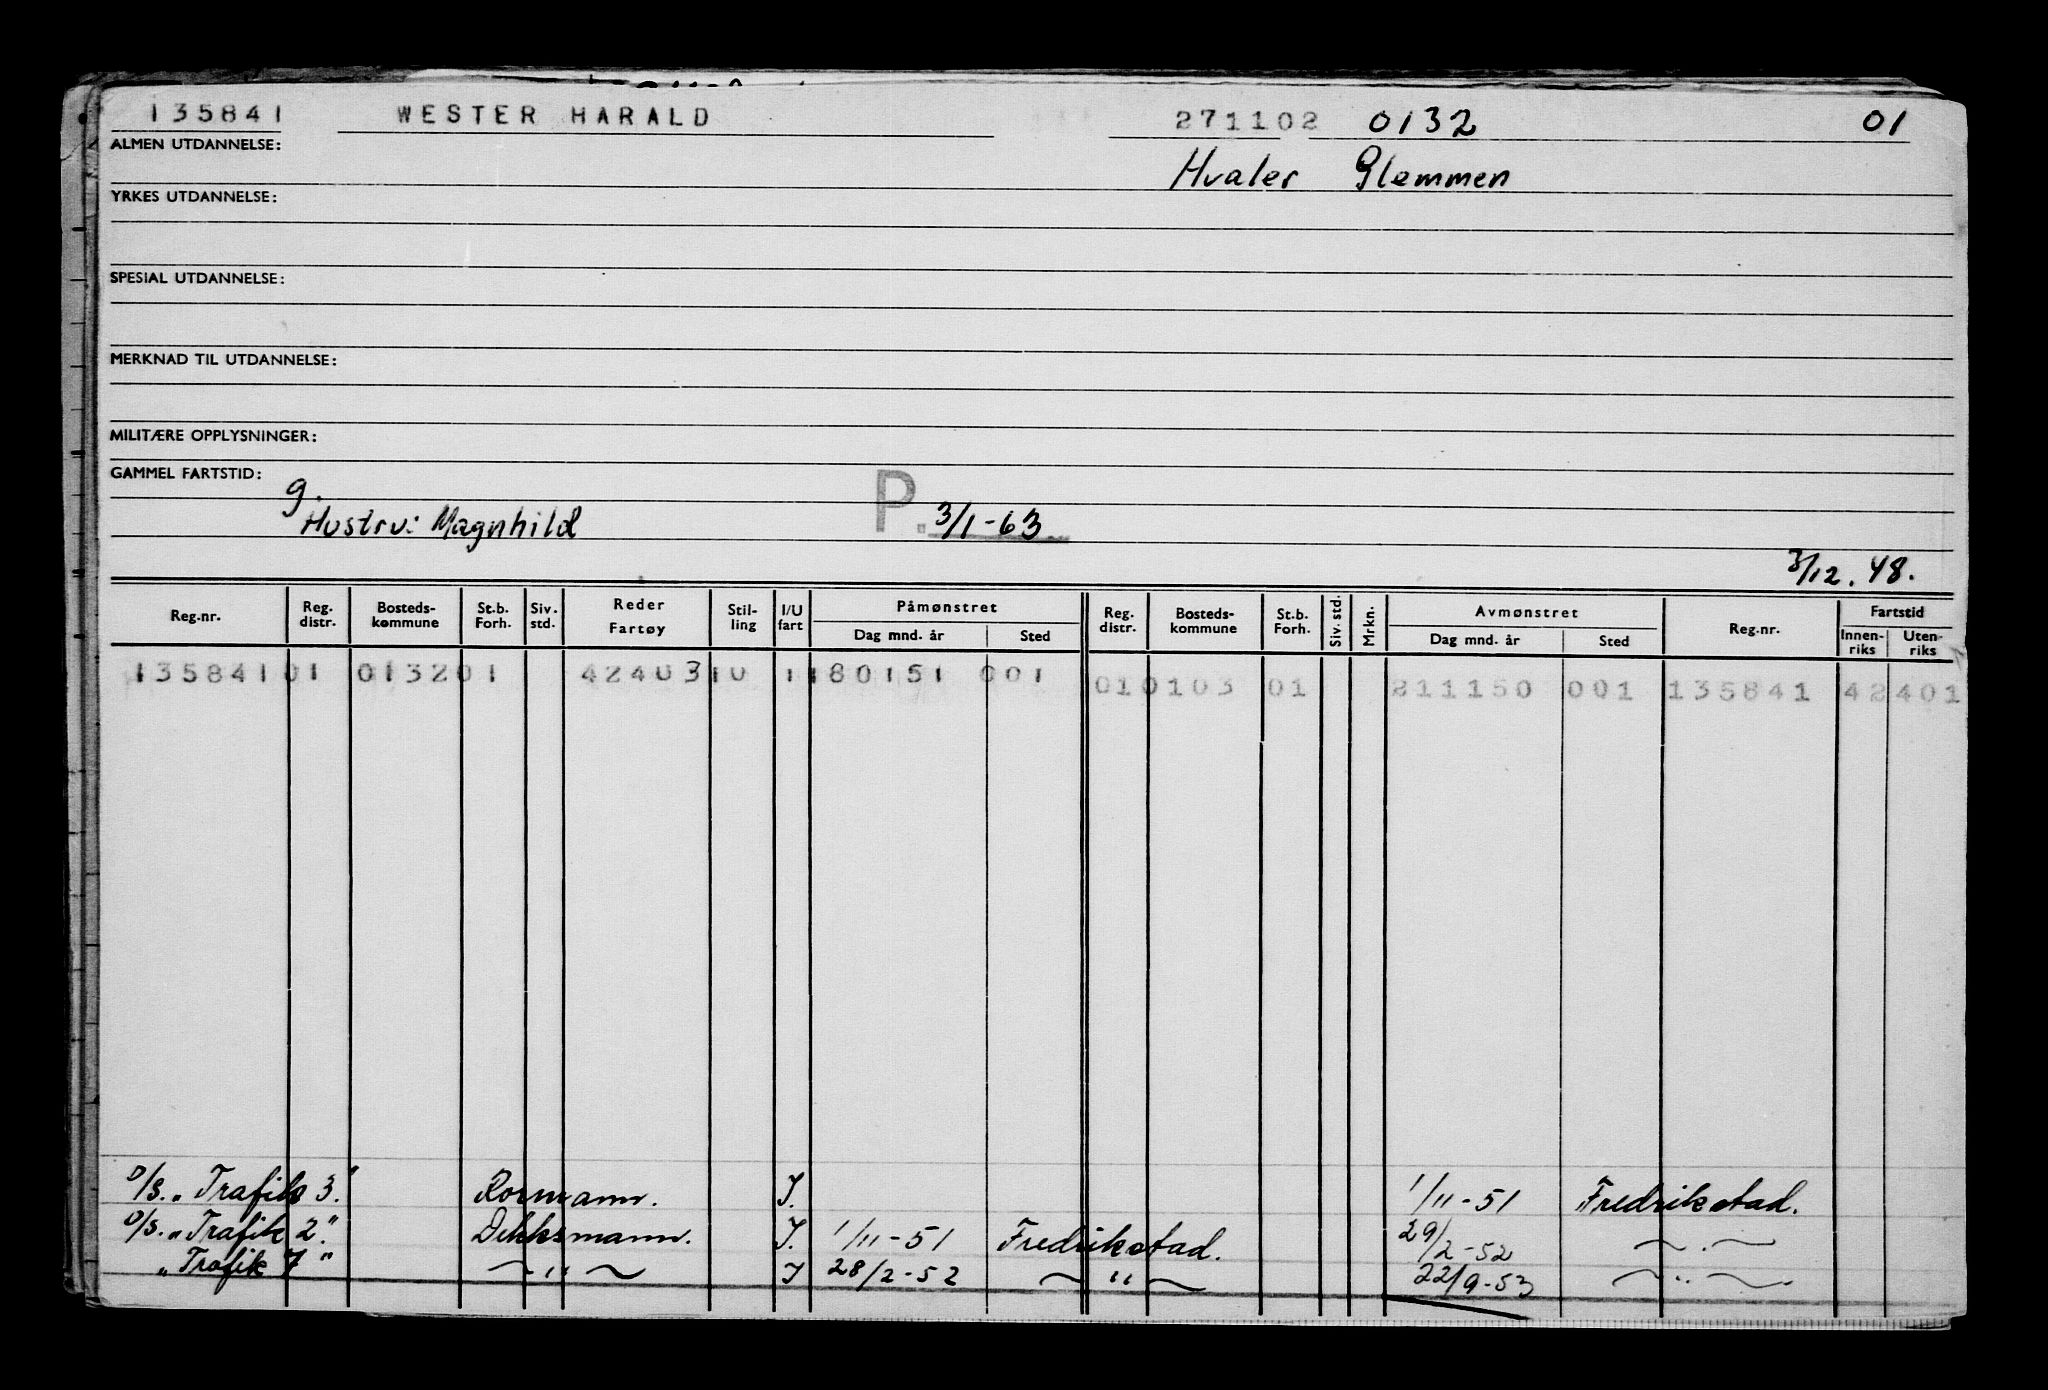 135841 WESTER HARALD 271102 0132 01
ALMEN UTDANNELSE:
Hvaler Glemmen
YRKES UTDANNELSE:
SPESIAL UTDANNELSE:
MERKNAD TIL UTDANNELSE:
MILITÆRE OPPLYSNINGER:
GAMMEL FARTSTID:
g.
Hustru: Magnhild P. 3/1-63
3/12. 48.
Reg.nr. Reg. distr. Bosteds-kommune St.b. Forh. Siv. std. Reder Fartøy Stil-ling I/U fart Påmønstret Dag mnd. år Sted Reg. distr. Bosteds-kommune St.b. Forh. Siv. std. Mrkn. Avmønstret Dag mnd. år Sted Reg.nr. Fartstid Innen-riks Uten-riks
135841 01 0132 01 42403 10 1 180151 001
01 0103 01 211150 001 135841 42 401
D/S. "Trafik 3." Rormann. I. 1/11-51 Fredrikstad.
D/S. "Trafik 2." Dekksmann. I. 1/11-51 Fredrikstad. 29/2-52 ~ . ~
"Trafik 7" ~ " ~ I 28/2-52 ~ " ~ 22/9-53 ~ " ~.